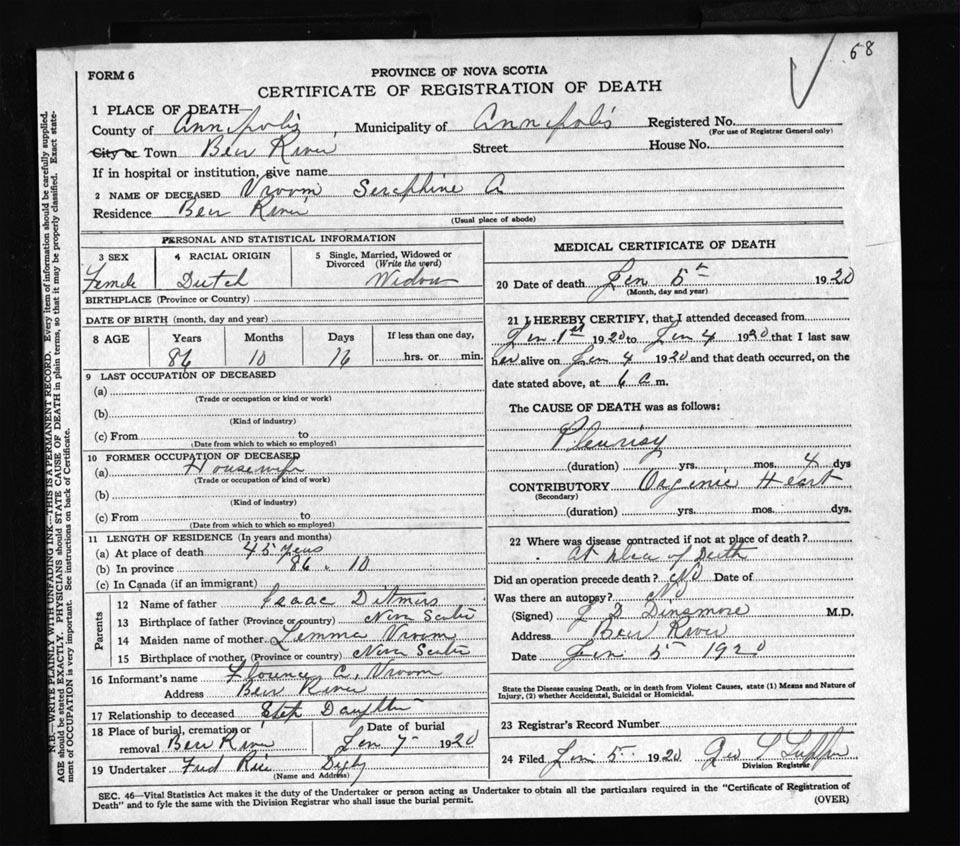 68
FORM 6
PROVINCE OF NOVA SCOTIA
CERTIFICATE OF REGISTRATION OF DEATH
1 PLACE OF DEATH—
County of Annapolis, Municipality of Annapolis Registered No.
(For use of Registrar General only)
City or Town Bear River Street House No.
If in hospital or institution, give name
2 NAME OF DECEASED Vroom Seraphine A
Residence Bear River
(Usual place of abode)
PERSONAL AND STATISTICAL INFORMATION
3 SEX 4 RACIAL ORIGIN 5 Single, Married, Widowed or Divorced (Write the word)
Female Dutch Widow
BIRTHPLACE (Province or Country)
DATE OF BIRTH (month, day and year)
8 AGE Years Months Days If less than one day,
86 10 16 hrs. or min.
9 LAST OCCUPATION OF DECEASED
(a)
(Trade or occupation or kind or work)
(b)
(Kind of industry)
(c) From to
(Date from which to which so employed)
10 FORMER OCCUPATION OF DECEASED
(a) Housewife
(Trade or occupation or kind of work)
(b)
(Kind of industry)
(c) From to
(Date from which to which so employed)
11 LENGTH OF RESIDENCE (In years and months)
(a) At place of death 45 years
(b) In province 86 " 10
(c) In Canada (if an immigrant)
Parents
12 Name of father Isaac Ditmars
13 Birthplace of father (Province or country) Nova Scotia
14 Maiden name of mother Vroom
15 Birthplace of mother (Province or country) Nova Scotia
16 Informant's name Florence C. Vroom
Address Bear River
17 Relationship to deceased Step Daughter
18 Place of burial, cremation or removal Bear River Date of burial Jan 7 1920
19 Undertaker Fred Rice Digby
(Name and Address)
MEDICAL CERTIFICATE OF DEATH
20 Date of death Jan 5th 1920
(Month, day and year)
21 I HEREBY CERTIFY, that I attended deceased from
Jan 1st 1920 to Jan 4 1920 that I last saw
her alive on Jan 4 1920 and that death occurred, on the
date stated above, at 6 a m.
The CAUSE OF DEATH was as follows:
Pleurisy
(duration) yrs. mos. 4 dys
CONTRIBUTORY Organic Heart
(Secondary)
(duration) yrs. mos. dys.
22 Where was disease contracted if not at place of death?
At place of Death
Did an operation precede death? No Date of
Was there an autopsy? No
(Signed) L D Dinsmore M.D.
Address Bear River
Date Jan 5 1920
State the Disease causing Death, or in death from Violent Causes, state (1) Means and Nature of
Injury, (2) whether Accidental, Suicidal or Homicidal.
23 Registrar's Record Number
24 Filed Jan 5 1920 Geo
Division Registrar
SEC. 46—Vital Statistics Act makes it the duty of the Undertaker or person acting as Undertaker to obtain all the particulars required in the "Certificate of Registration of
Death" and to fyle the same with the Division Registrar who shall issue the burial permit.
(OVER)
N.B.—WRITE PLAINLY WITH UNFADING INK—THIS IS A PERMANENT RECORD. Every item of information should be carefully supplied.
AGE should be stated EXACTLY. PHYSICIANS should STATE CAUSE OF DEATH in plain terms, so that it may be properly classified. Exact state-
ment of OCCUPATION is very important. See instructions on back of Certificate.